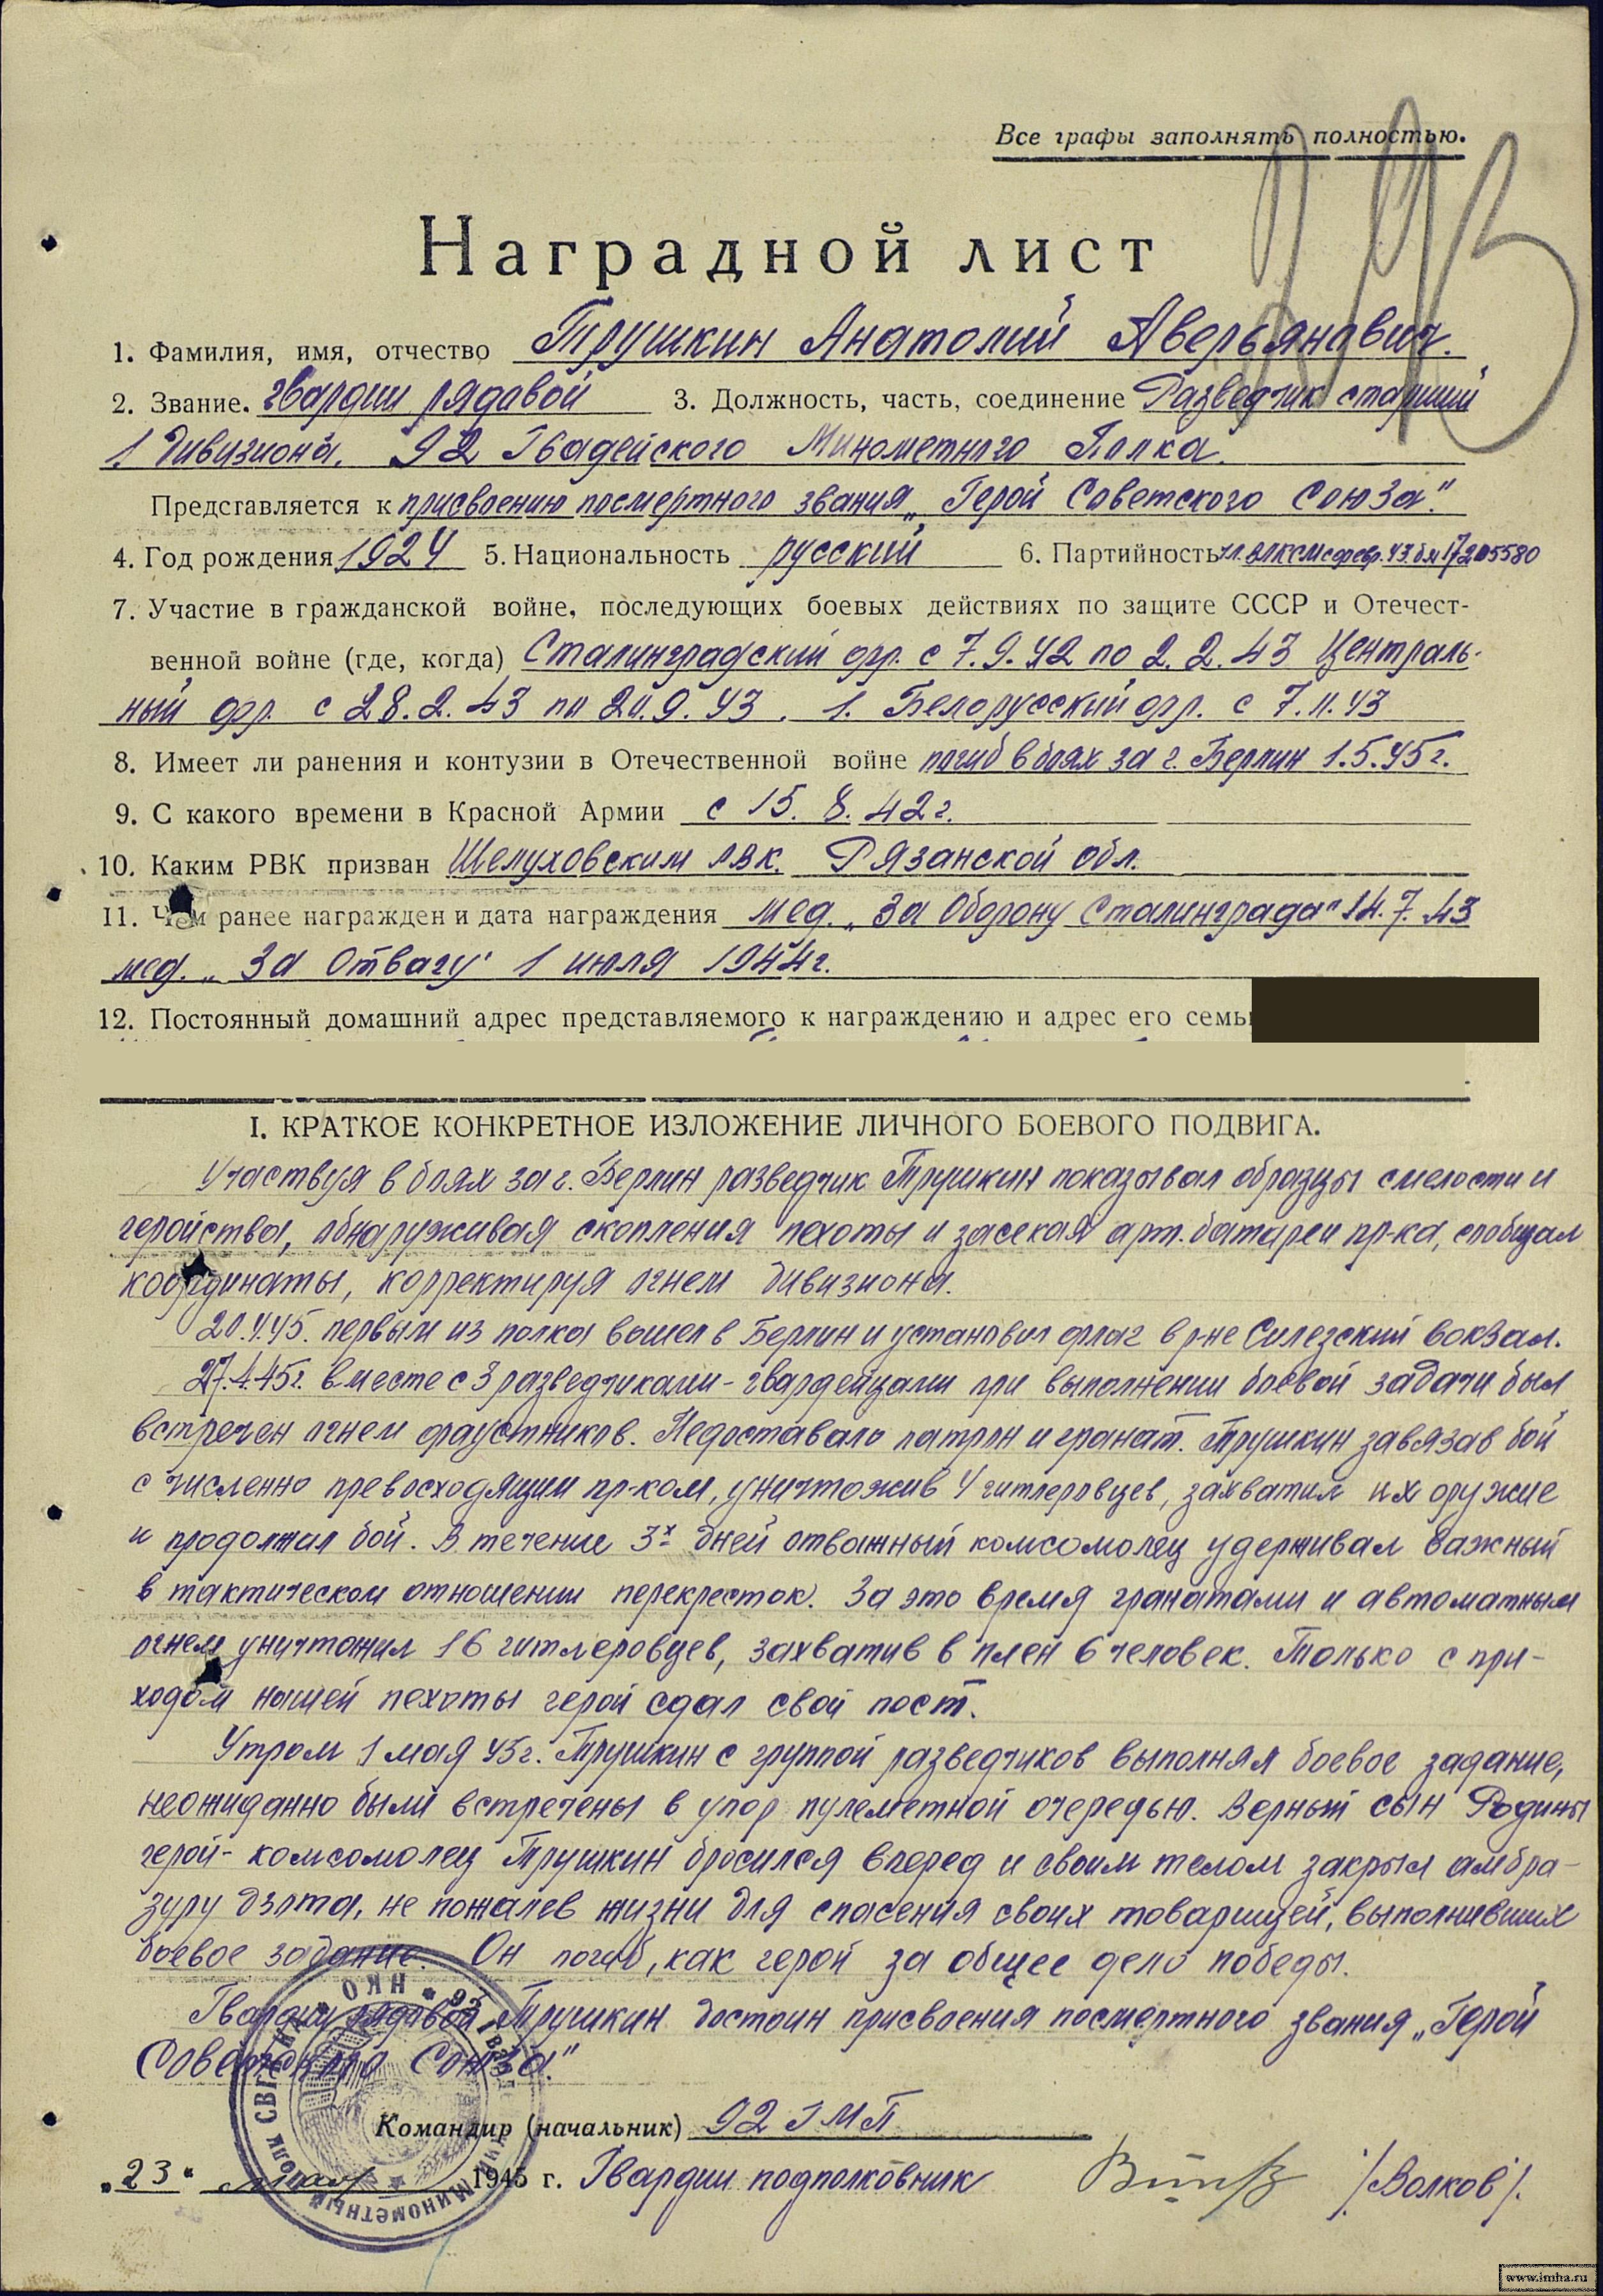 Все графы заполнять полностью.
Наградной лист
1. Фамилия, имя, отчество Трушкин Анатолий Аверьянович.
2. Звание. гвардии рядовой 3. Должность, часть, соединение Разведчик старший
1 Дивизиона, 92 Гвадейского Минометного Полка.
Представляется к присвоению посмертного звания „Герой Советского Союза".
4. Год рождения 1924 5. Национальность русский 6. Партийность чл. ВЛКСМ с февр. 43. бил 17205580
7. Участие в гражданской войне, последующих боевых действиях по защите СССР и Отечест-
венной войне (где, когда) Сталинградский фр. с 7.9.42 по 2.2.43 Централь-
ный фр. с 28.2.43 по 20.9.43. 1. Белорусский фр. с 7.11.43
8. Имеет ли ранения и контузии в Отечественной войне погиб в боях за г. Берлин 1.5.45г.
9. С какого времени в Красной Армии с 15.8.42г.
10. Каким РВК призван Шелуховским РВК. Рязанской обл.
11. Чем ранее награжден и дата награждения мед. „За Оборону Сталинграда" 14.7.43
мед. „За Отвагу" 1 июля 1944г.
12. Постоянный домашний адрес представляемого к награждению и адрес его
I. КРАТКОЕ КОНКРЕТНОЕ ИЗЛОЖЕНИЕ ЛИЧНОГО БОЕВОГО ПОДВИГА.
Участвуя в боях за г. Берлин разведчик Трушкин показывал образцы смелости и
геройства, обнаруживая скопления пехоты и засекая арт. батареи пр-ка, сообщал
координаты, корректируя огнем дивизиона.
20.4.45. первым из полка вошел в Берлин и установил флаг в р-не Силезский вокзал.
27.4.45г. вместе с 3 разведчиками-гвардейцами при выполнении боевой задачи был
встречен огнем фаустников. Недоставало патрон и гранат. Трушкин завязав бой
с численно превосходящим пр-ком, уничтожив 4 гитлеровцев, захватил их оружие
и продолжал бой. В течение 3х дней отважный комсомолец удерживал важный
в тактическом отношении перекресток. За это время гранатами и автоматным
огнем уничтожил 16 гитлеровцев, захватив в плен 6 человек. Только с при-
ходом нашей пехоты герой сдал свой пост.
Утром 1 мая 45г. Трушкин с группой разведчиков выполнял боевое задание,
неожиданно были встречены в упор пулеметной очередью. Верный сын Родины
герой-комсомолец Трушкин бросился вперед и своим телом закрыл амбра-
зуру дзота, не пожалев жизни для спасения своих товарищей, выполнивших
боевое задание. Он погиб, как герой за общее дело победы.
Гвардии рядовой Трушкин достоин присвоения посмертного звания „Герой
Советского Союза."
Командир (начальник) 92 ГМП
„23" мая 1945 г. Гвардии подполковник /Волков/.
НКО * 92 Гвард
Минометный полк СВГК
www.imha.ru